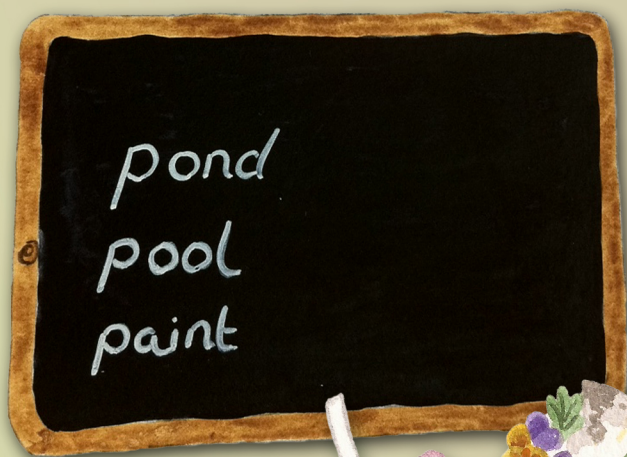 pond
pool
paint